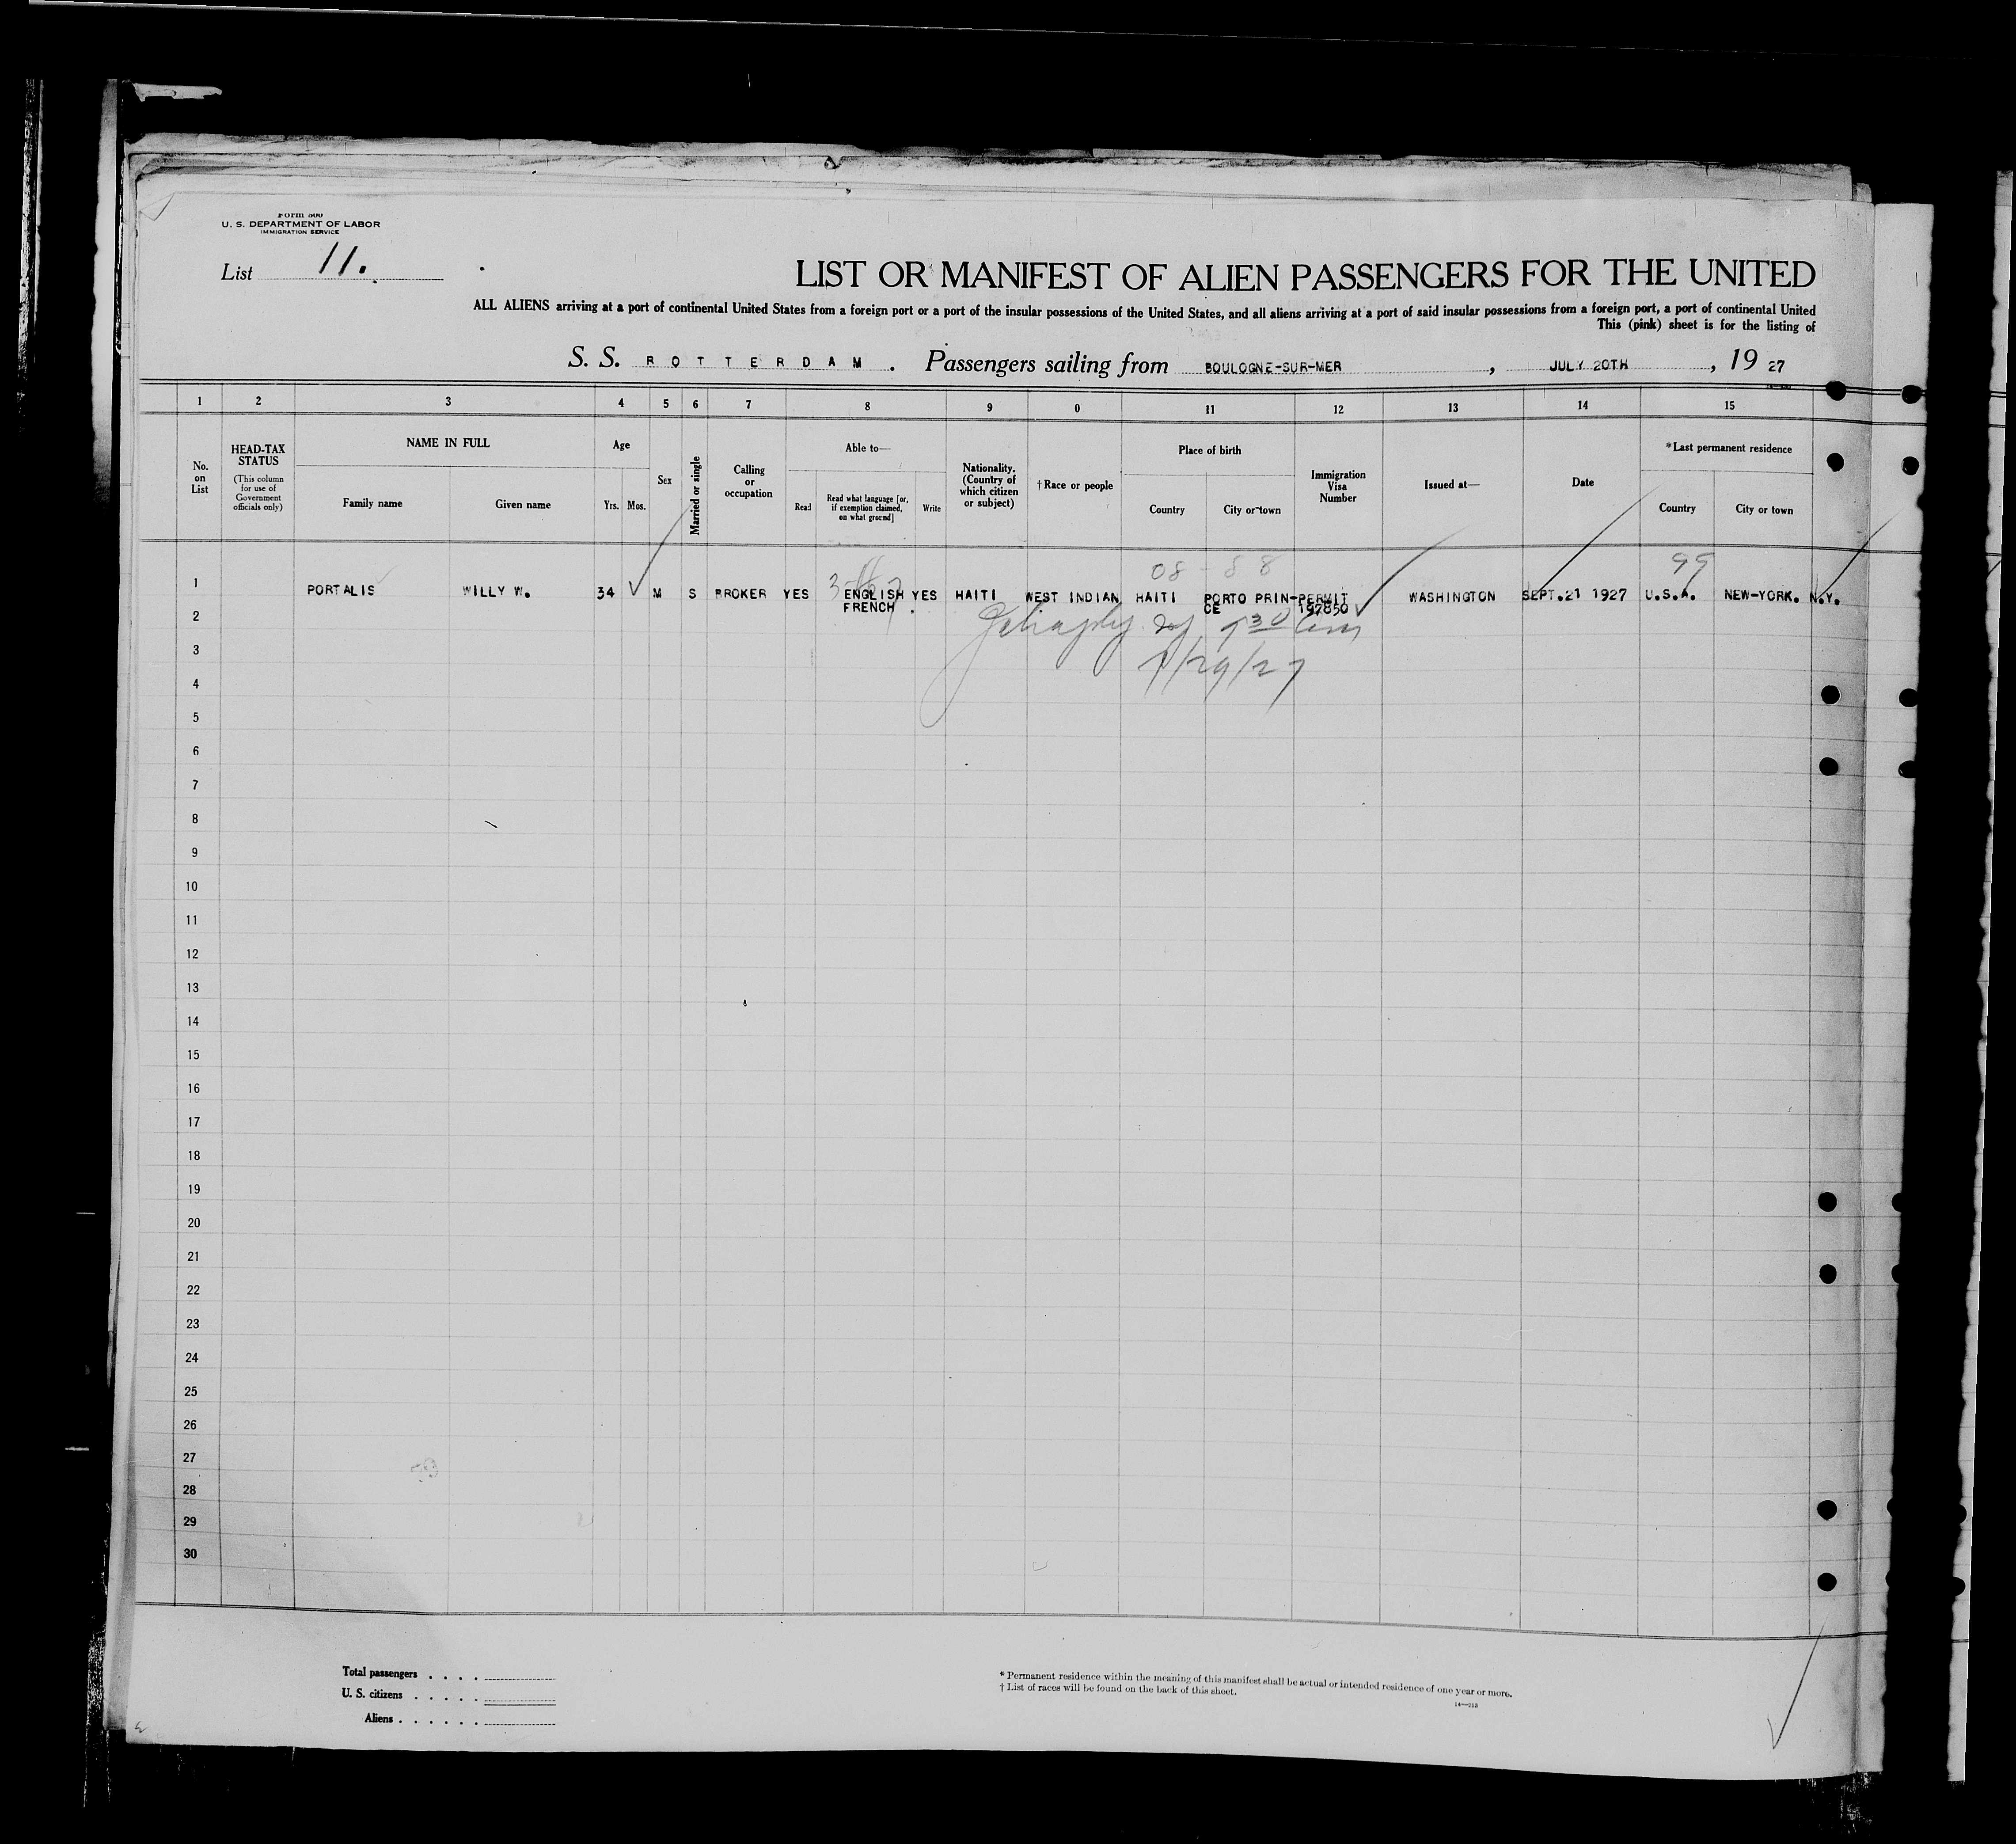 Form 500
U. S. DEPARTMENT OF LABOR
IMMIGRATION SERVICE
List 11.
LIST OR MANIFEST OF ALIEN PASSENGERS FOR THE UNITED
ALL ALIENS arriving at a port of continental United States from a foreign port or a port of the insular possessions of the United States, and all aliens arriving at a port of said insular possessions from a foreign port, a port of continental United
This (pink) sheet is for the listing of
S. S. ROTTERDAM. Passengers sailing from BOULOGNE-SUR-MER, JULY 20TH, 19 27
1 2 3 4 5 6 7 8 9 0 11 12 13 14 15
No. on List
HEAD-TAX STATUS
(This column for use of Government officials only)
NAME IN FULL
Family name
Given name
Age
Yrs. Mos.
Sex
Married or single
Calling or occupation
Able to—
Read
Read what language [or, if exemption claimed, on what ground]
Write
Nationality. (Country of which citizen or subject)
†Race or people
Place of birth
Country
City or town
Immigration Visa Number
Issued at—
Date
*Last permanent residence
Country
City or town
08 - 88
99
1 PORTALIS WILLY W. 34 M S BROKER YES ENGLISH YES HAITI WEST INDIAN HAITI PORTO PRIN- PERMIT WASHINGTON SEPT.21 1927 U.S.A. NEW-YORK. N.Y.
FRENCH. CE 197850
2
7/29/27
3
4
5
6
7
8
9
10
11
12
13
14
15
16
17
18
19
20
21
22
23
24
25
26
27
28
29
30
Total passengers . . . .
U. S. citizens . . . . .
Aliens . . . . . .
* Permanent residence within the meaning of this manifest shall be actual or intended residence of one year or more.
† List of races will be found on the back of this sheet.
14—213